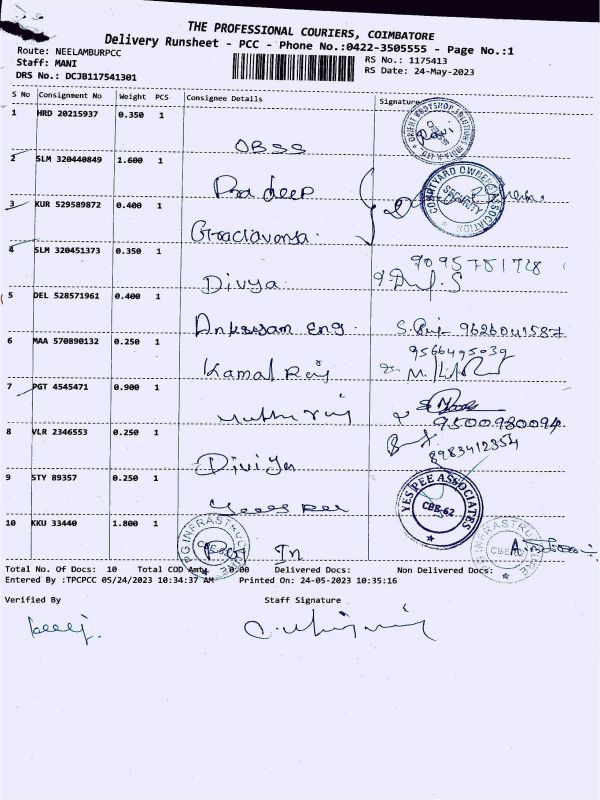 THE PROFESSIONAL COURIERS, COIMBATORE
Delivery Runsheet - PCC - Phone No.:0422-3505555 - Page No.:1
Route: NEELAMBURPCC
Staff: MANI
DRS No.: DCJB117541301
RS No.: 1175413
RS Date: 24-May-2023
S No Consignment No Weight PCS Consignee Details Signature
1 HRD 20215937 0.350 1
OBSS
2 SLM 320440849 1.600 1
Pradeep
COURTYARD OWNERS ASSOCIATION
SECURITY
3 KUR 529589872 0.400 1
4 SLM 320451373 0.350 1
Divya
9095751728
5 DEL 528571961 0.400 1
Eng 9626041587
6 MAA 570890132 0.250 1
Kamal Raj
9566495039
7 PGT 4545471 0.900 1
9500980094
8 VLR 2346553 0.250 1
Diviya
8983412354
9 STY 89357 0.250 1
YES PEE ASSOCIATES
CBE-62
10 KKU 33440 1.800 1
PG INFRASTRUCTURE
Total No. Of Docs: 10 Total COD Amt: 0.00 Delivered Docs: Non Delivered Docs:
Entered By :TPCPCC 05/24/2023 10:34:37 AM Printed On: 24-05-2023 10:35:16
Verified By Staff Signature